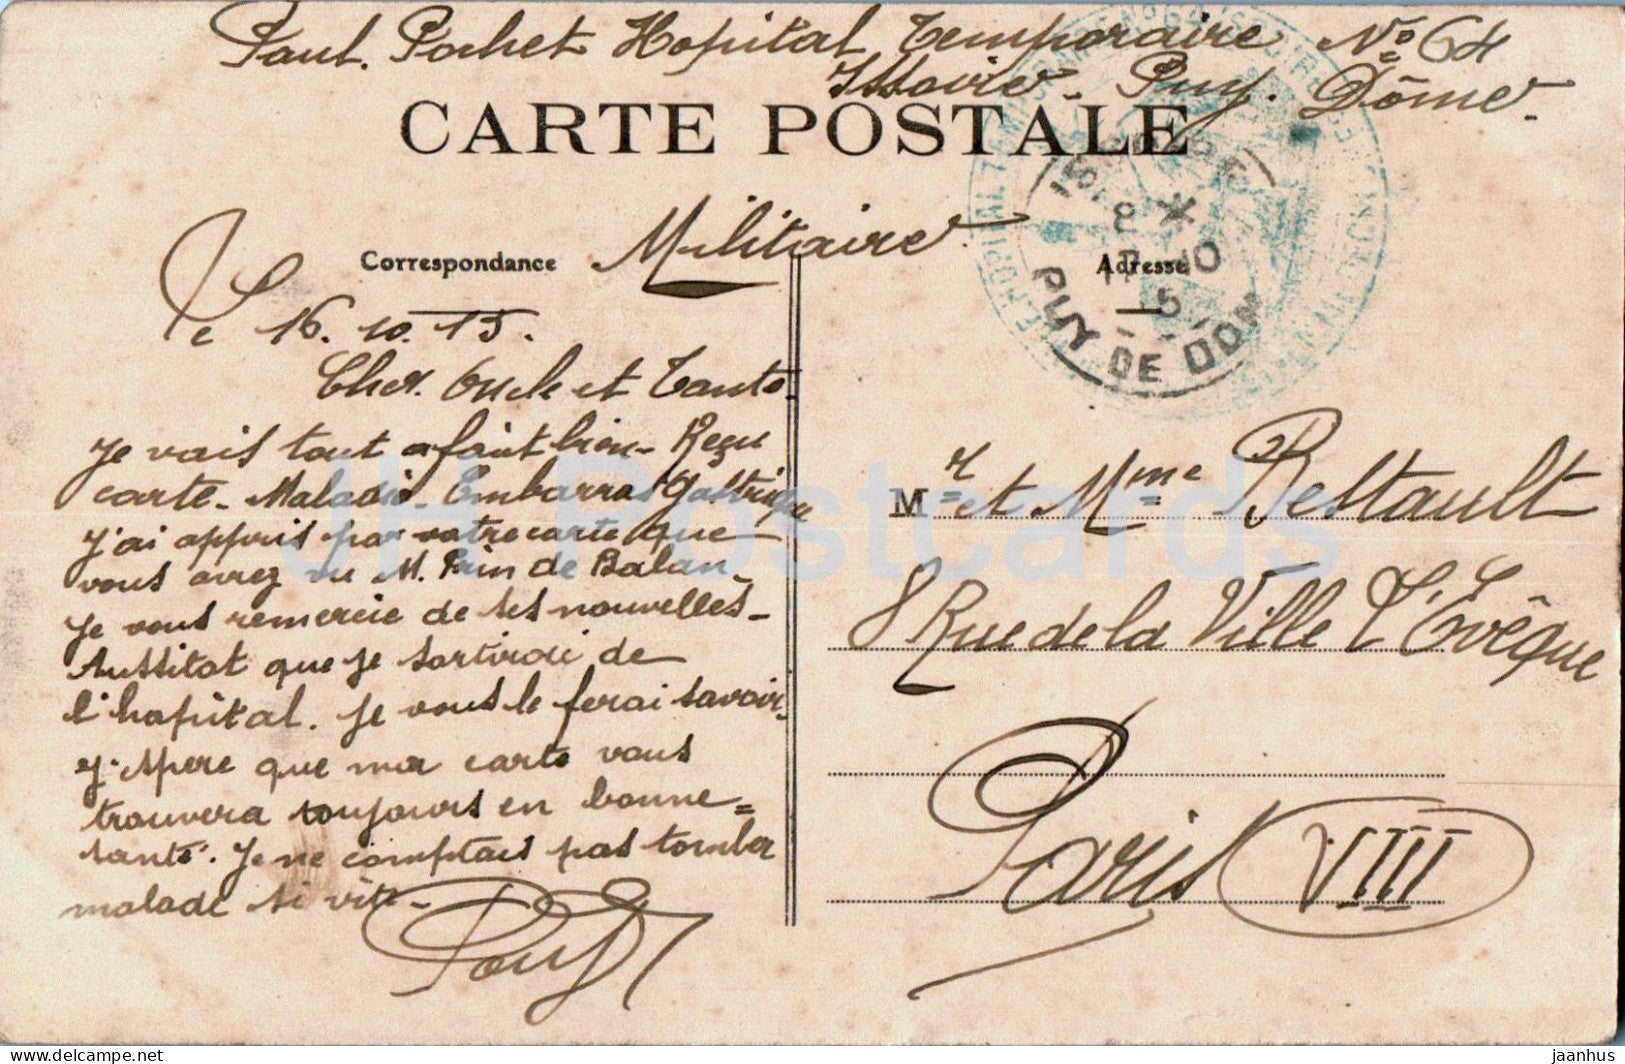 Paul. Pochet Hopital Temporaire No 64
Issoire. Puy. Dôme.
CARTE POSTALE
Militaire
Correspondance
Adresse
PUY DE DOME
8 *
17 10
15
Le 16. 10. 15.
Cher Oncle et Tante.
Je vais tout a fait bien. Reçu
carte. Maladie. Embarras Gastrique
J'ai appris par votre carte que
vous avez vu M. Prin de Balan.
Je vous remercie de ses nouvelles.
Aussitot que je sortirai de
l'hopital. Je vous le ferai savoir.
J'espere que ma carte vous
trouvera toujours en bonne=
santé. Je ne comptais pas tomber
malade si vite.
Paul
Mr et Mme Beltault
8 Rue de la Ville L'Evêque
Paris VIII
JH Postcards
delcampe.net
jaanhus